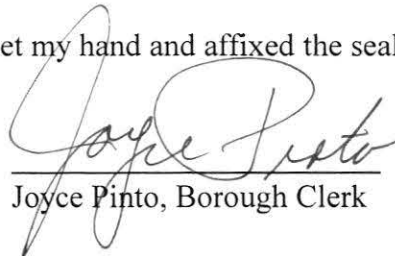 et my hand and affixed the seal
Joyce Pinto
Joyce Pinto, Borough Clerk